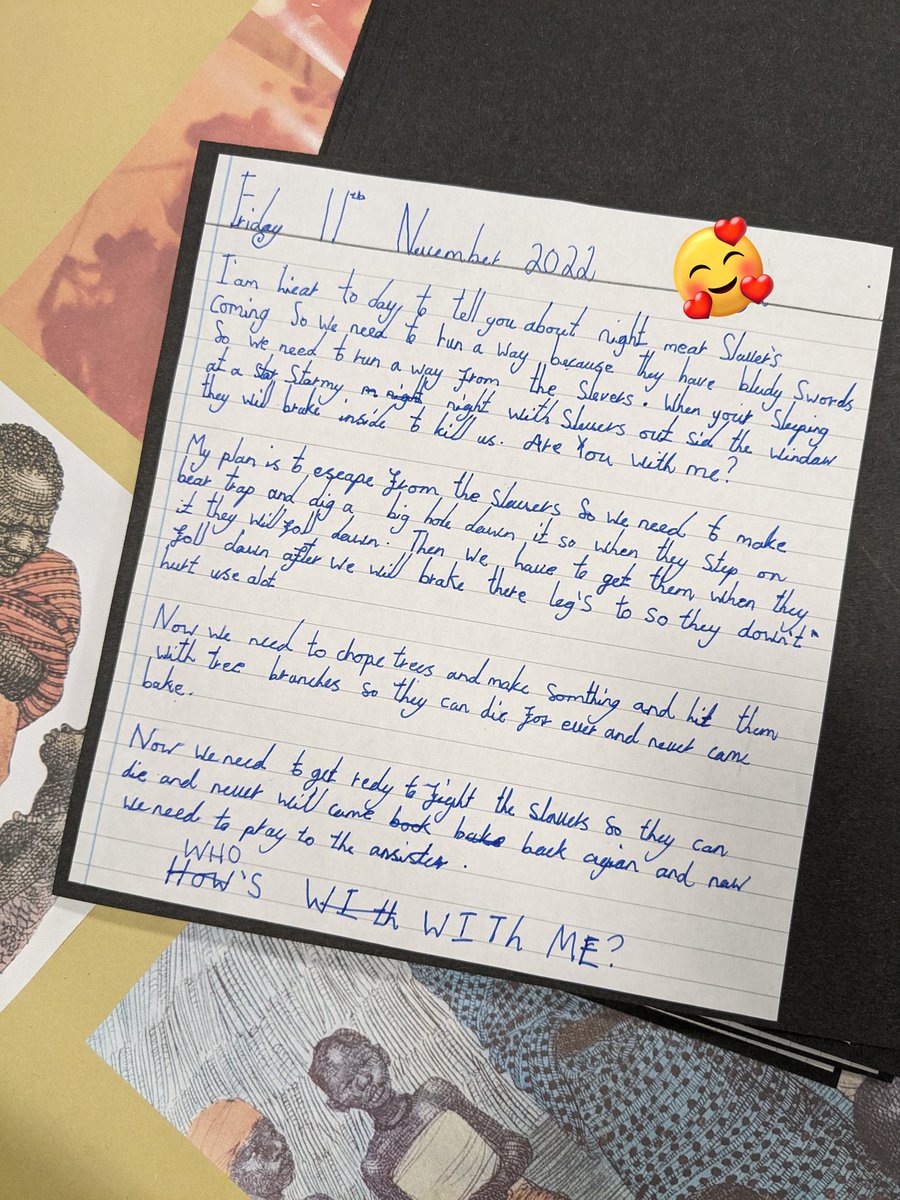 Friday 11th November 2022
I'am hieat to day, to tell you about night mear Slauer's
coming So we need to run a way because they have bludy Swords
So we need to run a way from the Slevers. When your Sleeping
at a Sto Starmy m night night with Slauers out sid the window
they will brake inside to kill us. Are You with me?
My plan is to escape from the slauers So we need to make
bear trap and dig a big hole dawn it so when they step on
it they will foll dawn. Then we haue to get them when they
foll dawn after we will brake there leg's to so they down't
hurt use alot
Now we need to chope trees and make somthing and hit them
with tree branches so they can die for ever and never came
bake.
Now we need to get redy to fight the slauers so they can
die and never will came book bake back agian and naw
we need to pray to the ansister.
WHO
How's WIth WITh ME?